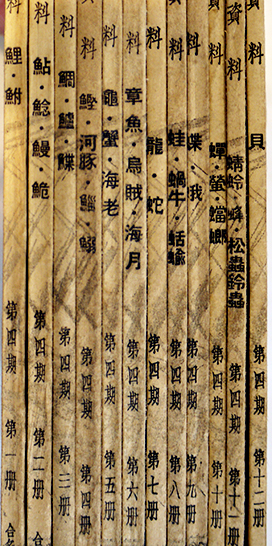 料 鯉・鮒 第四期 第一册
料 鮎・鯰・鰻・鮠 第四期 第二册
料 鯛・鱸・鰈 第四期 第三册
料 鰹・河豚・鯔・鰯 第四期 第四册
料 龜・蟹・海老 第四期 第五册
料 章魚・烏賊・海月 第四期 第六册
料 龍・蛇 第四期 第七册
料 蛙・蝸牛・蛞蝓 第四期 第八册
料 蝶・蛾 第四期 第九册
料 蟬・螢・蟷螂 第四期 第十册
資料 蜻蛉 蜂 松蟲鈴蟲 第四期 第十一册
資料 貝 第四期 第十二册